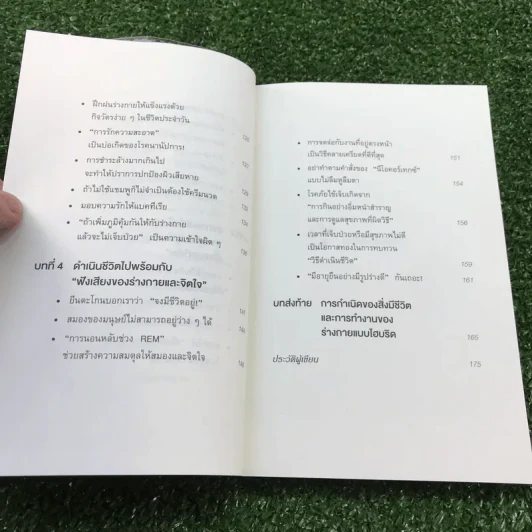 • ฝึกฝนร่างกายให้แข็งแรงด้วย
กิจวัตรง่าย ๆ ในชีวิตประจำวัน
• "การรักความสะอาด"
เป็นบ่อเกิดของโรคนานัปการ!
• การชำระล้างมากเกินไป
จะทำให้ปราการปกป้องผิวเสียหาย
• ถ้าไม่ใช้แชมพูก็ไม่จำเป็นต้องใช้ครีมนวด
• มอบความรักให้แบคทีเรีย
• "ถ้าเพิ่มภูมิคุ้มกันให้กับร่างกาย
แล้วจะไม่เจ็บป่วย" เป็นความเข้าใจผิด ๆ
บทที่ 4 ดำเนินชีวิตไปพร้อมกับ
"ฟังเสียงของร่างกายและจิตใจ"
• ยีนตะโกนบอกเราว่า "จงมีชีวิตอยู่!"
• สมองของมนุษย์ไม่สามารถอยู่ว่าง ๆ ได้
• "การนอนหลับช่วง REM"
ช่วยสร้างความสมดุลให้สมองและจิตใจ
• การจดจ่อกับงานที่อยู่ตรงหน้า
เป็นวิธีคลายเครียดที่ดีที่สุด 151
• อย่าทำตามคำสั่งของ "นีโอคอร์เทกซ์"
แบบไม่ลืมหูลืมตา 154
• โรคภัยไข้เจ็บเกิดจาก
"การกินอย่างอิ่มหนำสำราญ
และการดูแลสุขภาพที่ผิดวิธี" 156
• เวลาที่เจ็บป่วยหรือมีสุขภาพไม่ดี
เป็นโอกาสทองในการทบทวน
"วิธีดำเนินชีวิต" 159
• "มีอายุยืนอย่างมีรูปร่างดี" กันเถอะ! 161
บทส่งท้าย การกำเนิดของสิ่งมีชีวิต
และการทำงานของ
ร่างกายแบบไฮบริด 165
ประวัติผู้เขียน 175